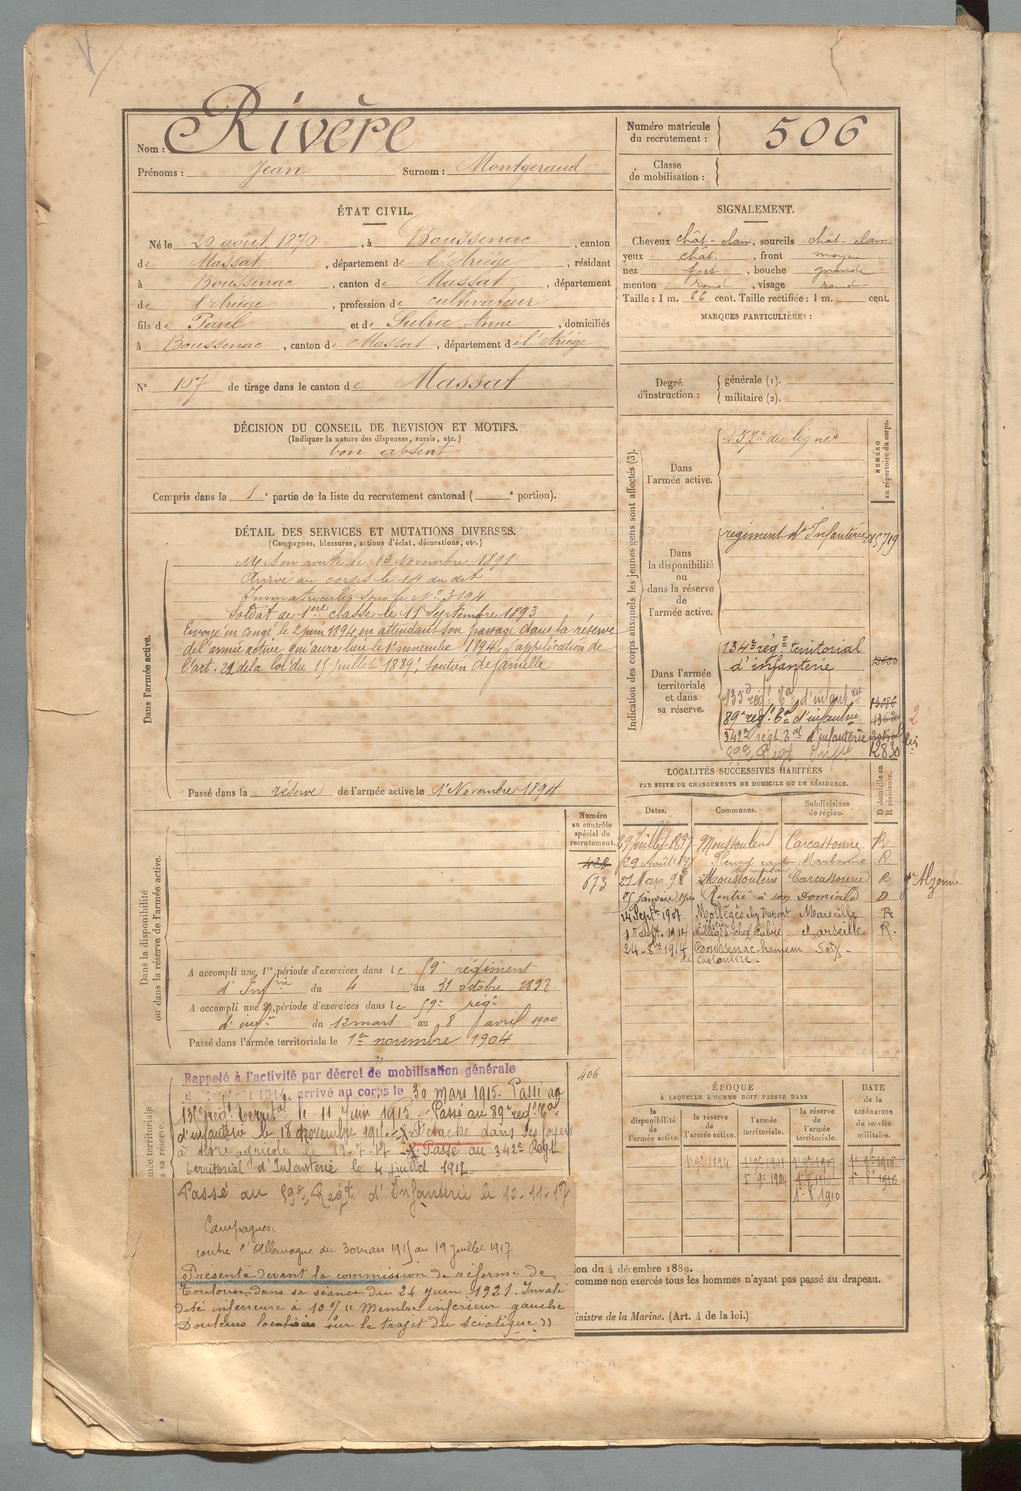 Nom : Rivère
Prénoms : Jean Surnom : Montgeraud
Numéro matricule du recrutement : 506
Classe de mobilisation :
ÉTAT CIVIL.
Né le 20 août 1870, à Boussenac, canton
de Massat, département de l'Ariège, résidant
à Boussenac, canton de Massat, département
de l'Ariège, profession de cultivateur
fils de Paul et de Sutra Anne, domiciliés
à Boussenac, canton de Massat, département de l'Ariège
N° 107 de tirage dans le canton de Massat
SIGNALEMENT.
Cheveux chât-clair, sourcils chât-clair
yeux chât., front moyen
nez fort, bouche grande
menton rond, visage rond
Taille : 1 m. 66 cent. Taille rectifiée : 1 m. cent.
MARQUES PARTICULIÈRES :
Degré d'instruction : générale (1).
militaire (2).
DÉCISION DU CONSEIL DE REVISION ET MOTIFS.
(Indiquer la nature des dispenses, sursis, etc.)
bon absent
Compris dans la 1e partie de la liste du recrutement cantonal ( e portion).
DÉTAIL DES SERVICES ET MUTATIONS DIVERSES.
(Campagnes, blessures, actions d'éclat, décorations, etc.)
Dans l'armée active.
Mis en route le 13 Novembre 1891
Arrivé au corps le 14 du dit
Immatriculé sous le N° 3194
Soldat de 1ere classe le 11 Septembre 1893
Envoyé en congé, le 2 juin 1894 en attendant son passage dans la réserve
de l'armée active qui aura lieu le 1er novembre 1894, application de
l'art. 22 de la loi du 15 juillet 1889, soutien de famille
Passé dans la réserve de l'armée active le 1er Novembre 1894
Indication des corps auxquels les jeunes gens sont affectés (3).
NUMÉRO au répertoire du corps.
Dans l'armée active.
157e de ligne
Dans la disponibilité ou dans la réserve de l'armée active.
régiment d'Infanterie
Dans l'armée territoriale et dans sa réserve.
134e régt territorial
d'infanterie
135e régt t'al d'infant rie 13086
89e régt t'al d'infanterie
342e régt t'al d'infanterie
Régt Inf 12830
2 bis
LOCALITÉS SUCCESSIVES HABITÉES
PAR SUITE DE CHANGEMENTS DE DOMICILE OU DE RÉSIDENCE.
Dates. Communes. Subdivisions de région. D domicile ou R résidence.
29 Juillet 1897 Moussoulens Carcassonne R
29 Août 189 Fleury canton Narbonne R
27 Mars 98 Moussoulens Carcassonne R
Alzonne
Janvier 1900 Rentré à son Domicile D
14 Septre 1907 Mollégès chez Dumont Marseille R
18 Sept. 1914 Mollégès chez Fabre Marseille R.
24-8re 1914 Boussenac-hameau Foix
de
Dans la disponibilité ou dans la réserve de l'armée active.
Numéro au contrôle spécial du recrutement.
428
673
A accompli une 1re période d'exercices dans le 59e régiment
d'Infrie du 4 au 31 octobre 1897
A accompli une 2e période d'exercices dans le 59e régt
d'infie du 12 mars au 8 avril 1900
Passé dans l'armée territoriale le 1er novembre 1904
406
Rappelé à l'activité par décret de mobilisation générale
arrivé au corps le 30 mars 1915. Passé au
le 11 Juin 1915. Passé au 89e régt
d'infanterie le 18 novembre 191 Détaché dans ses foyers
à titre agricole le 19-7-17 Passé au 342e Régt
territorial d'Infanterie le 4 juillet 1917.
Passé au 59e Régt d'Infanterie le 10-11-17
Campagnes:
contre l'Allemagne du 30 mars 1915 au 19 juillet 1917
Présenté devant la commission de réforme de
Toulouse dans sa séance du 24 juin 1921. Invali
dité inférieure à 10% « Membre inférieur gauche
Douleurs localisées sur le trajet du sciatique »
ÉPOQUE
À LAQUELLE L'HOMME DOIT PASSER DANS
la disponibilité de l'armée active. la réserve de l'armée active. l'armée territoriale. la réserve de l'armée territoriale.
DATE de la LIBÉRATION du service militaire.
1er 9e 1894
1er 9e 1904
1er 8 1910
ion du 4 décembre 1889.
comme non exercés tous les hommes n'ayant pas passé au drapeau.
inistre de la Marine. (Art. 4 de la loi.)